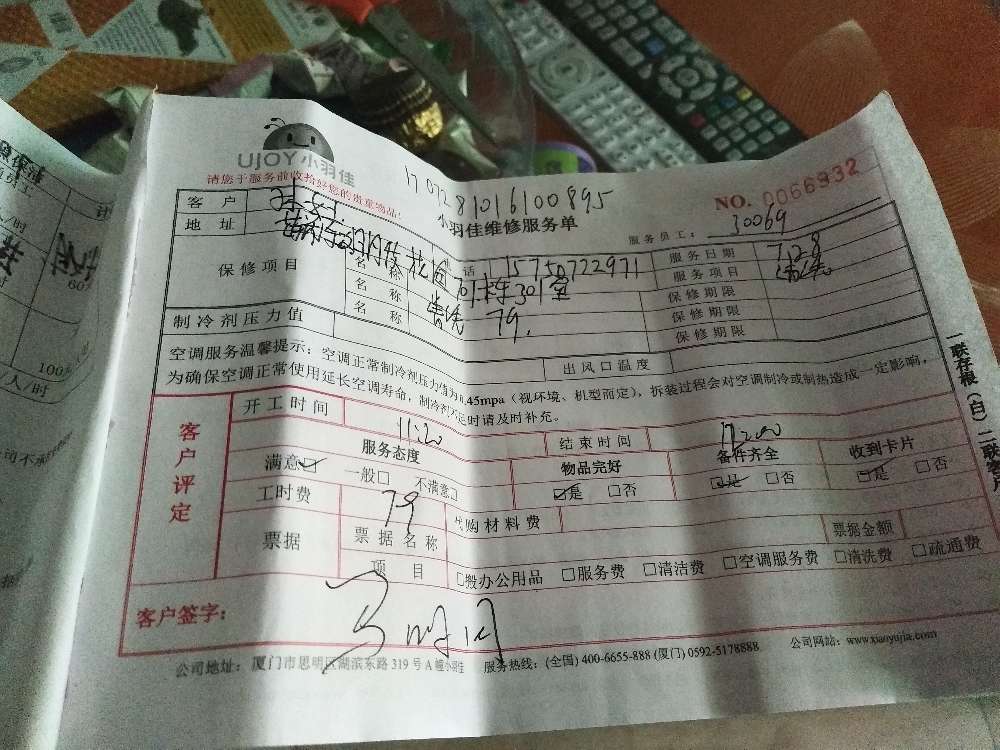 UJOY小羽佳
请您于服务前收拾好您的贵重物品!
1707281016100895
小羽佳维修服务单
NO. 0066932
服务员工: 30069
客户
地址
电话 15750722971
服务日期 7.28
保修项目
名称
名称
名称
79.
服务项目
保修期限
保修期限
保修期限
制冷剂压力值
出风口温度
空调服务温馨提示:空调正常制冷剂压力值为0.45mpa(视环境、机型而定),拆装过程会对空调制冷或制热造成一定影响,
为确保空调正常使用延长空调寿命,制冷剂不足时请及时补充。
客户评定
开工时间 11:20
结束时间
服务态度
物品完好
备件齐全
收到卡片
满意☑ 一般□ 不满意□
☑是 □否
☑是 □否
☑是 □否
工时费 79
代购材料费
票据
票据名称
票据金额
项目
□搬办公用品 □服务费 □清洁费 □空调服务费 □清洗费 □疏通费
客户签字:
公司地址:厦门市思明区湖滨东路 319 号 A 幢小羽佳 服务热线:(全国) 400-6655-888 (厦门) 0592-5178888 公司网站: www.xiaoyujia.com
一联存根(白)二联客户
60%
100
人/时